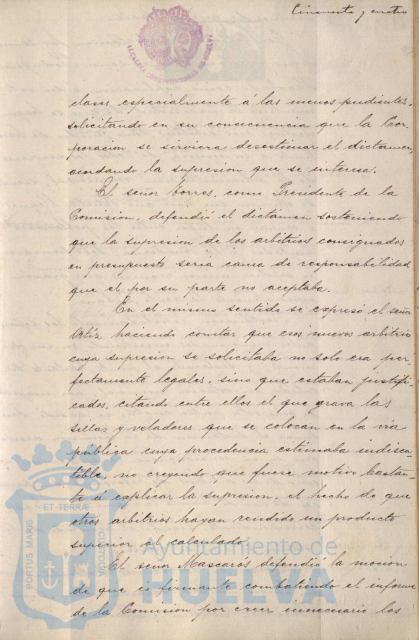 Cincuenta y cuatro
clases especialmente á las menos pudientes,
solicitando en su consecuencia que la Cor-
poracion se sirviera desestimar el dictamen
acordando la supresion que se interesa.
El señor Torres, como Presidente de la
Comision, defendió el dictamen sosteniendo
que la supresion de los arbitrios consignados
en presupuesto seria causa de responsabilidad
que el por su parte no aceptaba.
En el mismo sentido se expresó el señor
Ortiz haciendo constar que esos nuevos arbitrios
cuya supresion se solicitaba no solo era per-
fectamente legales, sino que estaban justifi-
cados, citando entre ellos el que grava las
sillas y veladores que se colocan en la via
pública cuya procedencia estimaba indiscu-
tible, no creyendo que fuere motivo bastan-
te á explicar la supresion, el hecho de que
otros arbitrios hayan rendido un producto
superior al calculado.
El señor Mascarós defendió la mocion
de que es firmante combatiendo el informe
de la Comision por creer innecesario los
PORTUS MARIS ET TERRAE
Ayuntamiento de
HUELVA